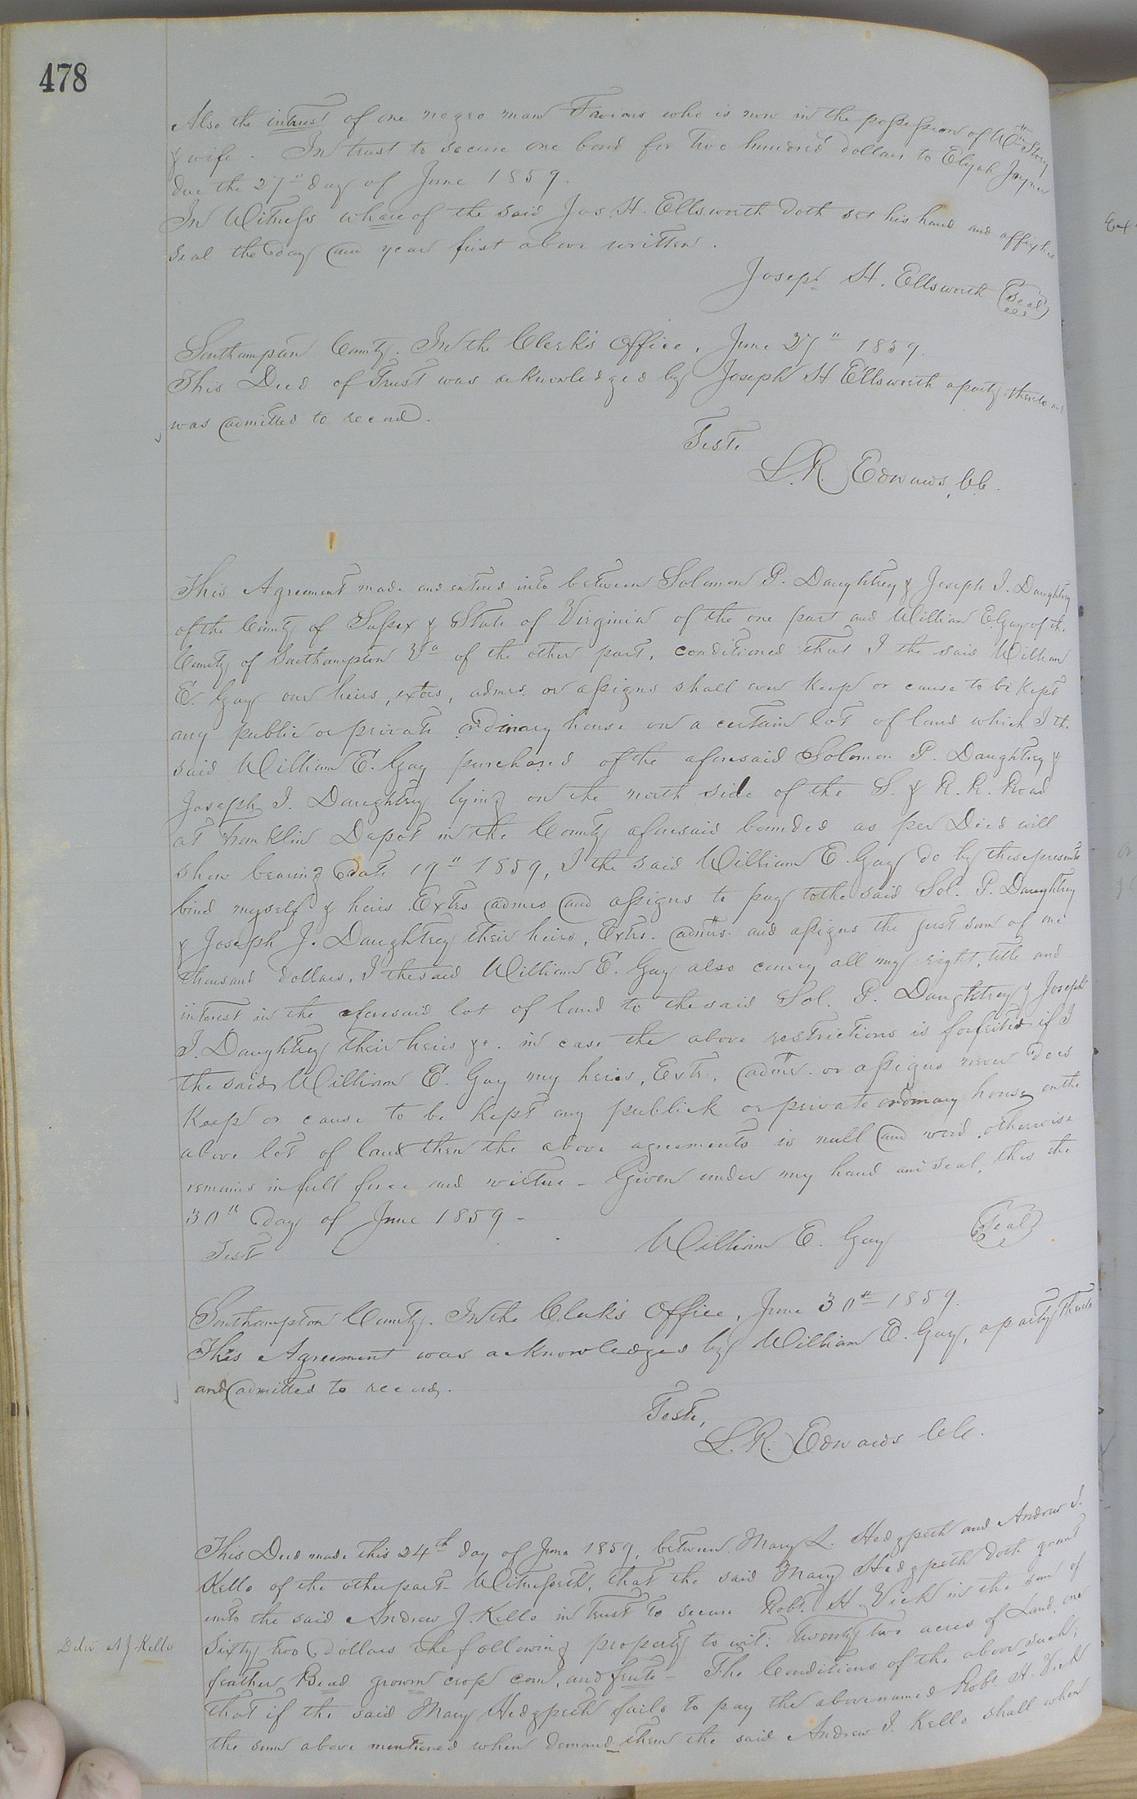 478
Also the interest of one negro man Favious who is now in the possession of Wm Story
& wife. In trust to secure one bond for two hundred dollars to Elijah Joyner
due the 27th day of June 1859.
In Witness whareof the said Jos. H. Ellsworth doth set his hand and affix his
seal the day and year first above written.
Joseph H. Ellsworth (Seal)
Southampton County. In the Clerk's Office, June 27th 1859.
This Deed of Trust was acknowledged by Joseph H Ellsworth a party thereto and
was admitted to record.
Teste
L. R. Edwards, C.C.
This Agreement made and entered into between Solomon P. Daughtrey & Joseph J. Daughtrey
of the County of Sussex & State of Virginia of the one part and William E. Gay of the
County of Southampton Va of the other part, conditioned that I the said William
E. Gay our heirs, extrs, admrs. or assigns shall ever keep or cause to be kept
any public or private ordinary house on a certain lot of land which I the
said William E. Gay purchased of the aforesaid Solomon P. Daughtrey &
Joseph J. Daughtrey lying on the north side of the S. & R. R. Road
at Franklin Depot in the County aforesaid bounded as per Deed will
show bearing date 19th 1859, I the said William E. Gay do by these presents
bind myself & heirs Extrs admrs and assigns to pay to the said Sol. P. Daughtrey
& Joseph J. Daughtrey their heirs, Extrs. admrs. and assigns the just sum of one
thousand dollars, I the said William E. Gay also convey all my right, title and
interest in the aforesaid lot of land to the said Sol. P. Daughtrey & Joseph
J. Daughtrey their heirs &c. in case the above restrictions is forfeited if I
the said William E. Gay my heirs, Extr, admr. or assigns never does
Keep or cause to be kept any publick or private ordinary house on the
above lot of land then the above agreements is null and void otherwise
remains in full force and virtue - Given under my hand and seal, this the
30th day of June 1859 -
Test
William E. Gay (Seal)
Southampton County. In the Clerk's Office, June 30th 1859.
This Agreement was acknowledged by William E. Gay, a party thereto
and admitted to record.
Teste,
L. R. Edwards C.C.
This Deed made this 24th day of June 1859, between Mary L. Hedgpeth and Andrew J.
Kello of the other part Witnesseth, that the said Mary Hedgpeth doth grant
unto the said Andrew J. Kello in trust to secure Robt. H. Vick in the sum of
Sixty two Dollars the following property to wit: twenty two acres of Land, one
Delv A J Kello
feather Bead growin crop corn, and frute - The Conditions of the above such,
that if the said Mary Hedgpeth fails to pay the above named Robt H. Vick
the sum above mentioned when demand then the said Andrew J. Kello shall when